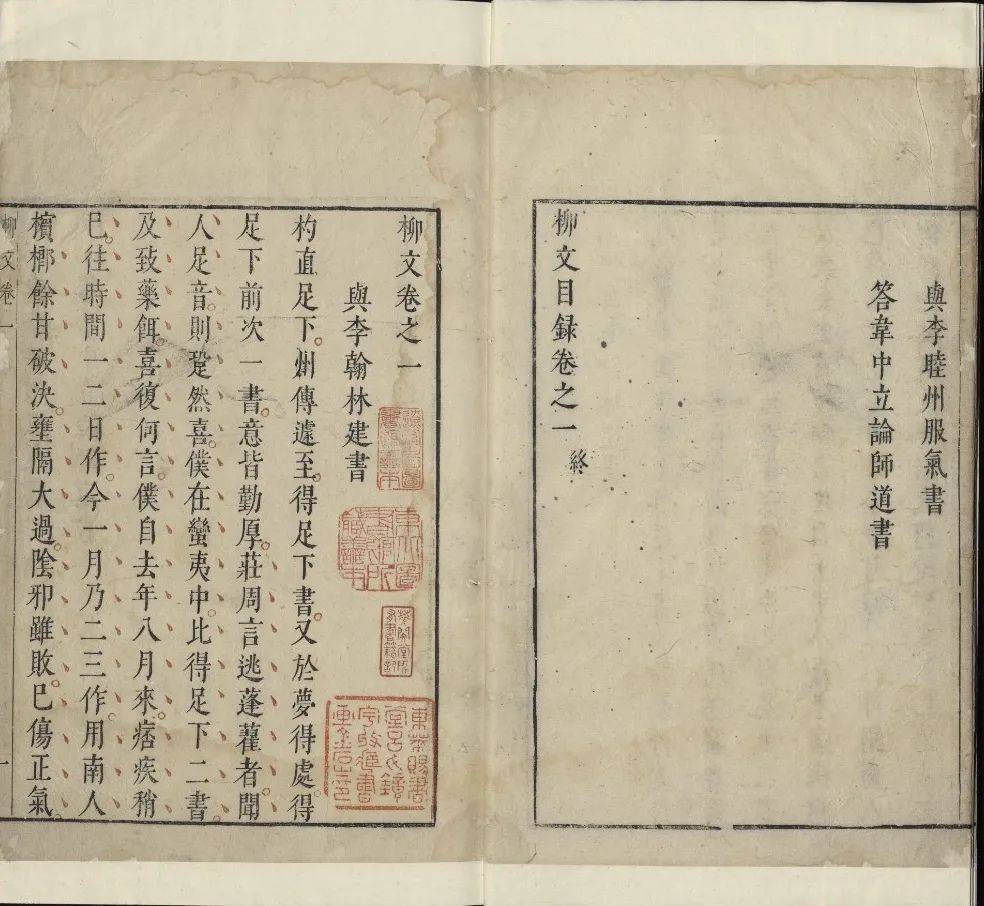 與李睦州服氣書
答韋中立論師道書
柳文目録卷之一 終
柳文卷之一
與李翰林建書
杓直足下。州傳遽至。得足下書。又於夢得處。得
足下前次一書。意皆勤厚。莊周言逃蓬藋者。聞
人足音。則跫然喜。僕在蠻夷中。比得足下二書。
及致藥餌。喜復何言。僕自去年八月來。痞疾稍
已。往時間一二日作。今一月乃二三作。用南人
檳榔餘甘。破決。壅隔大過。陰邪雖敗。已傷正氣。
柳文卷一
一